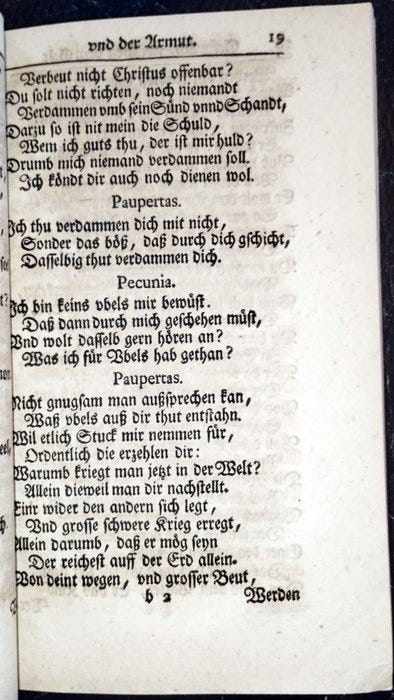 vnd der Armut. 19
Verbeut nicht Christus offenbar?
Du solt nicht richten, noch niemandt
Verdammen vmb sein Sünd vnnd Schandt,
Darzu so ist nit mein die Schuld,
Wem ich guts thu, der ist mir huld?
Drumb mich niemand verdammen soll.
Ich köndt dir auch noch dienen wol.
Paupertas.
Ich thu verdammen dich mit nicht,
Sonder das böß, daß durch dich gschicht,
Dasselbig thut verdammen dich.
Pecunia.
Ich bin keins vbels mir bewüst.
Daß dann durch mich geschehen müst,
Vnd wolt dasselb gern hören an?
Was ich für Vbels hab gethan?
Paupertas.
Nicht gnugsam man außsprechen kan,
Waß vbels auß dir thut entstahn.
Wil etlich Stuck mir nemmen für,
Ordentlich die erzehlen dir:
Warumb kriegt man jetzt in der Welt?
Allein dieweil man dir nachstellt.
Einr wider den andern sich legt,
Vnd grosse schwere Krieg erregt,
Allein darumb, daß er mög seyn
Der reichest auff der Erd allein.
Von deint wegen, vnd grosser Beut,
b 2 Werden